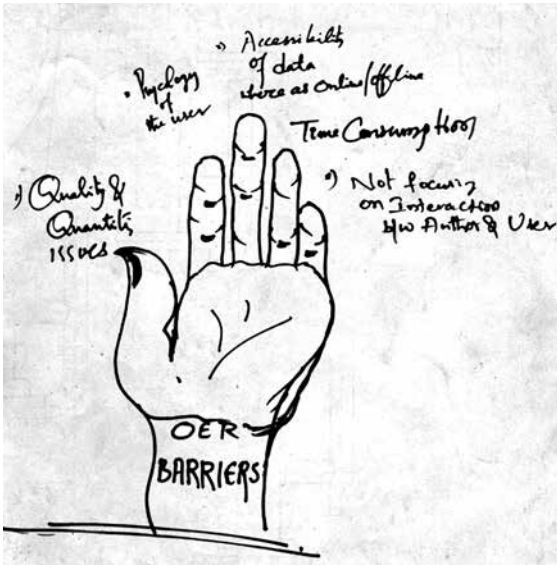 •) Accessibility
of data
where as online/offline
• Psycology
of
the user
Time Consumption
•) Quality &
Quantity
issues
•) Not focusing
on Interaction
b/w Author & User
OER
BARRIERS